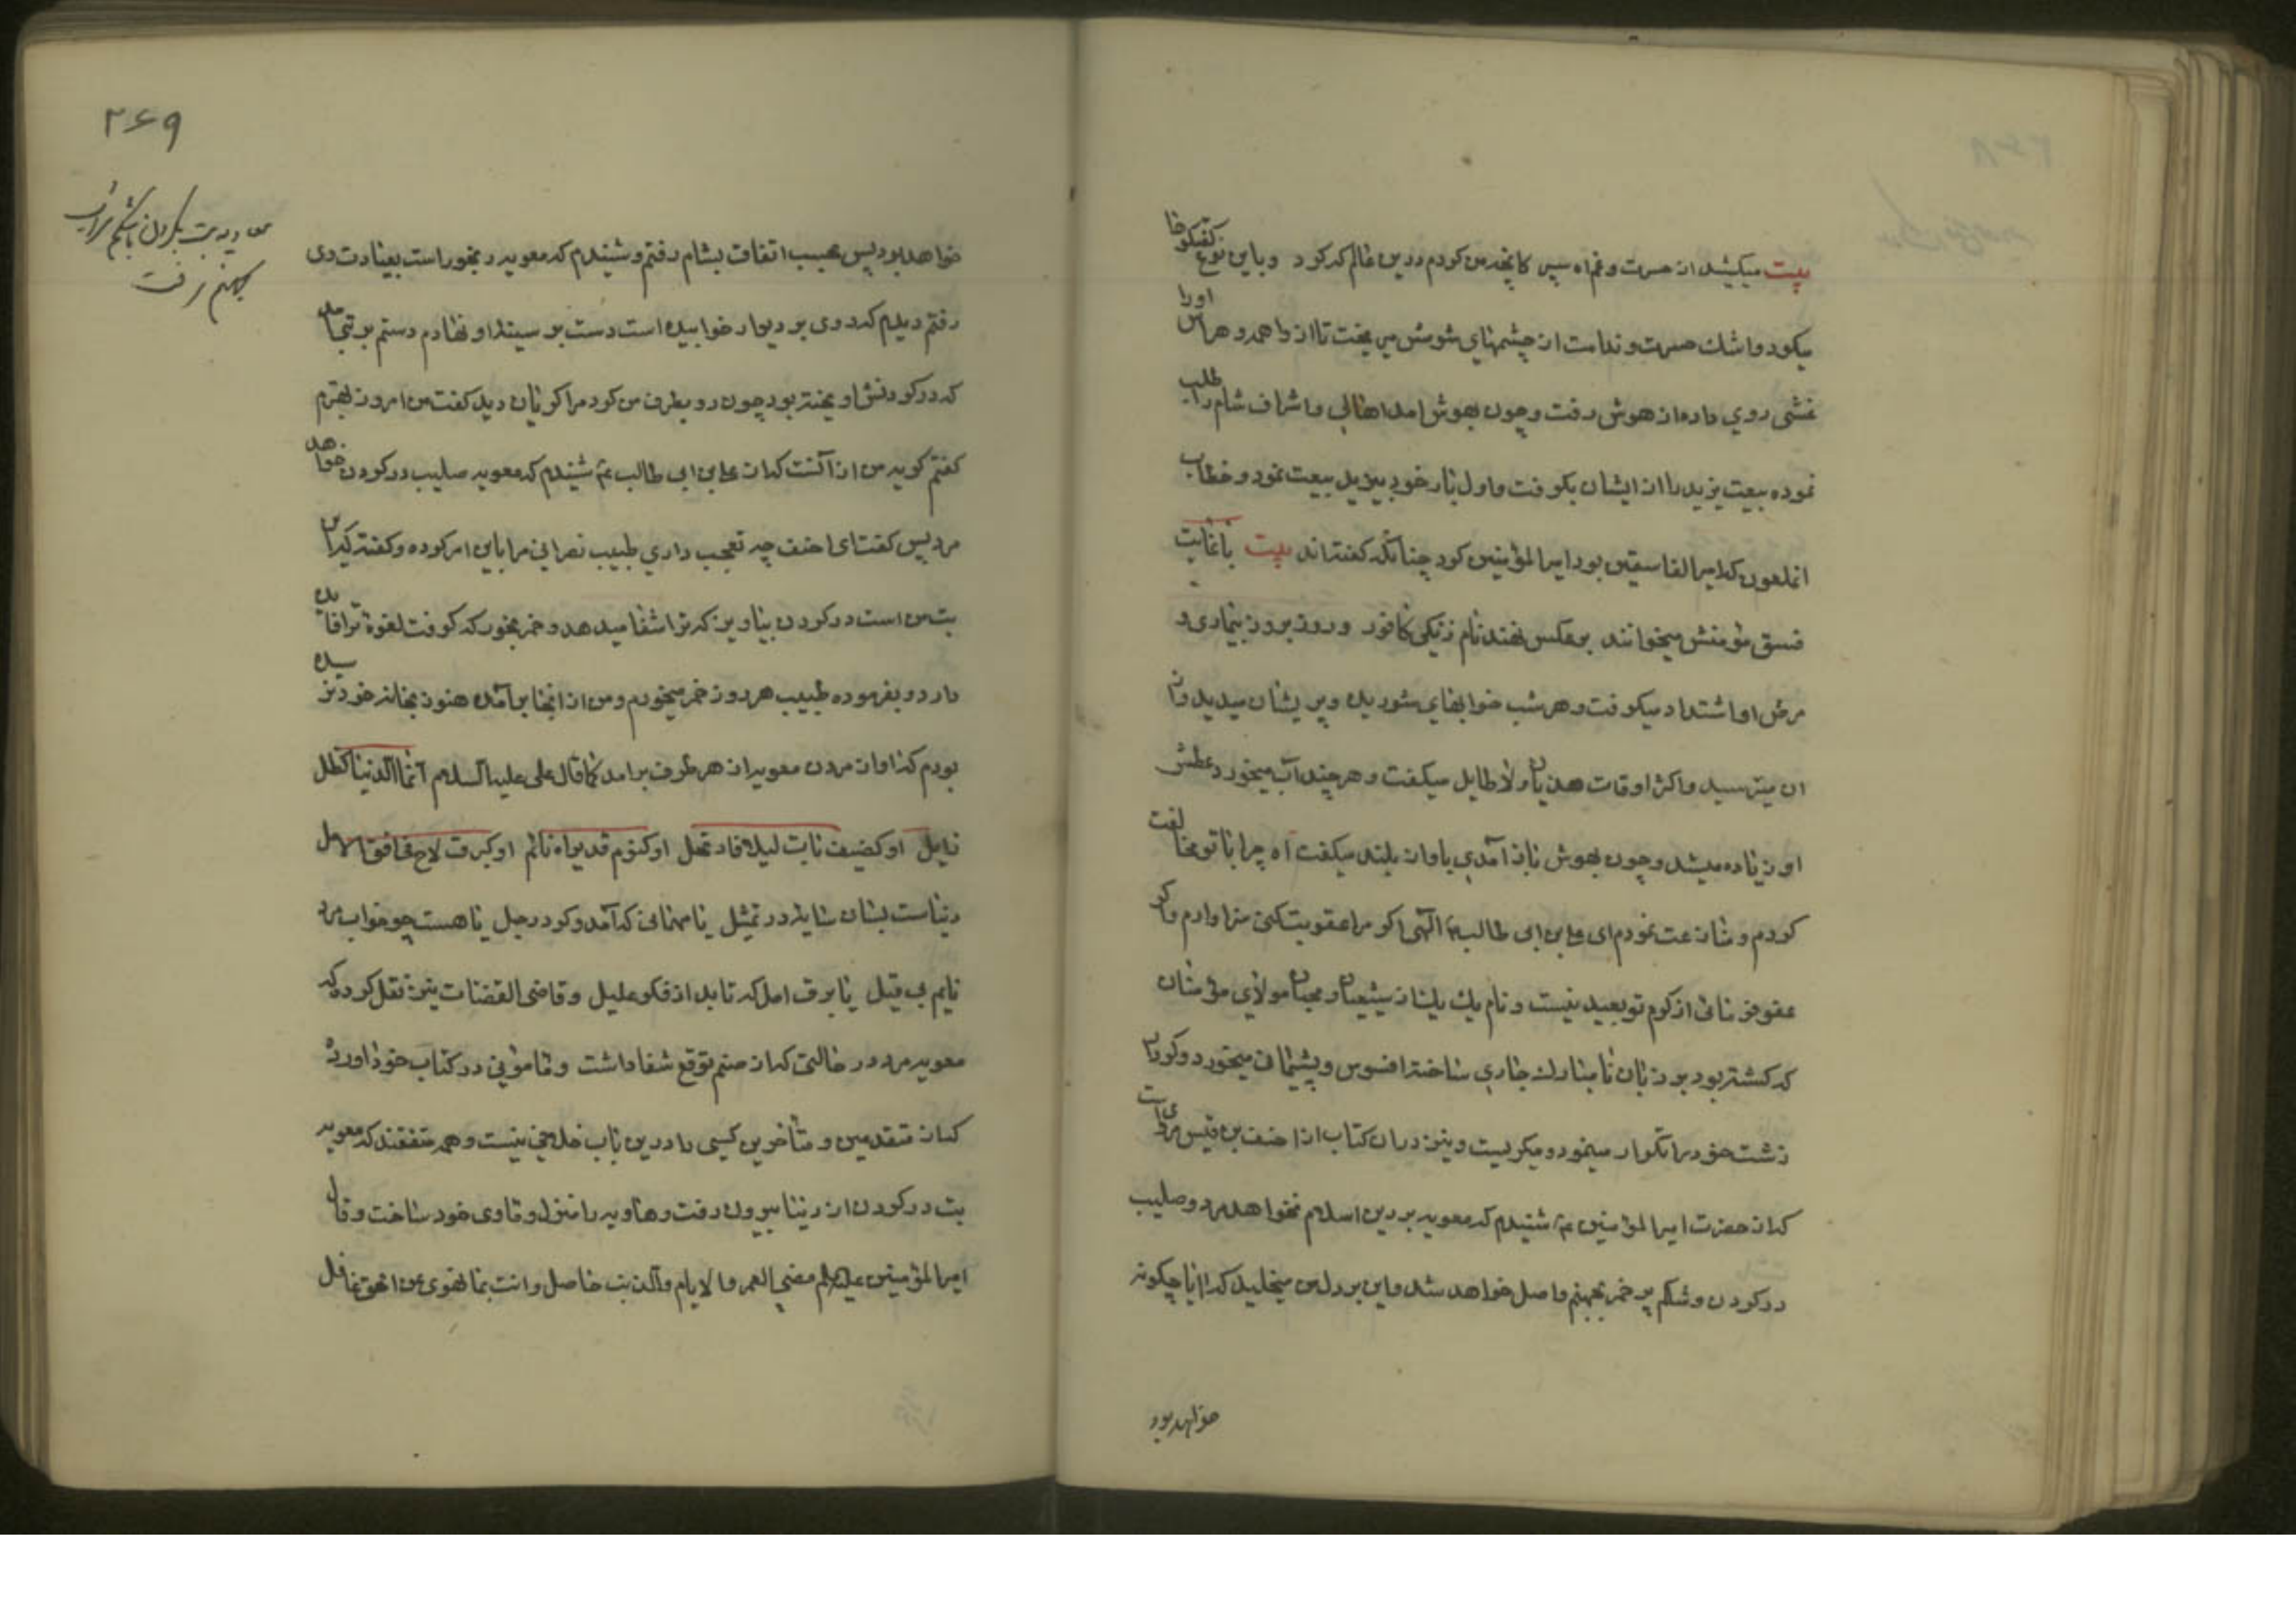 بیت میکشید از حسرت و غم آه سپس کانچه من کردم درین عالم که کرد و باین نوع گفتگوها
میکرد و اشک حسرت و ندامت از چشمهای شومش میریخت تا از واهمه و هراس اورا
غشی روی داده از هوش رفت و چون بهوش امد اهالی و اشراف شام را طلب
نموده بیعت یزید را از ایشان بگرفت و اول بار خود بیزید بیعت نمود و خطاب
انملعون که امیر الفاسقین بود امیر المؤمنین کرد چنانکه گفته اند بیت با غایت
فسق مؤمنش میخوانند برعکس نهند نام زنگی کافور و روز بروز بیماری و
مرض او اشتداد میگرفت و هر شب خوابهای شوریده و پریشان میدید و از
ان میترسید و اکثر اوقات هذیان و لاطایل میگفت و هر چند آب میخورد عطش
او زیاده میشد و چون بهوش باز آمدی باواز بلند میگفت آه چرا با تو مخالفت
کردم و منازعت نمودم ای علی بن ابی طالب الهی اکر مرا عقوبت کنی سزاوارم و اکر
عفو فرمائی از کرم تو بعید نیست و نام یک یک از شیعیان و محبان مولای مؤمنان
که کشته بود بر زبان نامبارک جاری ساخته افسوس و پشیمانی میخورد و کردار
زشت خود را تکرار مینمود و میگریست و نیز در ان کتاب از احنف بن قیس مرویست
که از حضرت امیر المؤمنین ع شنیدم که معویه بر دین اسلام نخواهد مرد و صلیب
در کردن و شکم پر خمر بجهنم واصل خواهد شد و این بر دل من میخلید که ایا چگونه
خواهد بود
۲۶۹
معاویه بت بگردن باشکم شراب
بجهنم رفت
خواهد بود پس بحسب اتفاق بشام رفتم و شنیدم که معویه رنجور است بعیادت وی
رفتم دیدم که روی بر دیوار خوابیده است دست بر سینه او نهادم دستم بر بتی آمد
که در کردنش اویخته بود چون رو بطرف من کرد مرا گریان دید گفت من امروز بهترم
گفتم گریه من از آنست که از علی بن ابی طالب ع شنیدم که معویه صلیب در کردن خواهد
مرد پس گفت ای احنف چه تعجب داری طبیب نصرانی مرا باین امر کرده و گفته که این
بت من است در کردن بیاویز که ترا شفا میدهد و خمر بخور که کوفت لقوه ترا فایده
دارد و بفرموده طبیب هر روز خمر میخورم و من از انجا بر آمده هنوز بخانه خود نرسیده
بودم که اواز مردن معویه از هر طرف برامد کما قال علی علیه السلام انما الدنیا کظل
زایل او کضیف بات لیلا فارتحل او کنوم قد یراه نائم او کبرق لاح فی افق الامل
دنیاست بسان سایه در تمثیل یا مهمانی که آمد و کرد رحیل یا هست چو خواب مرد
نایم بی قیل یا برق امل که تابد از فکر علیل و قاضی القضات نیز نقل کرده که
معویه مرد در حالتی که از صنم توقع شفا داشت و مامونی در کتاب خود اورده
که از متقدمین و متأخرین کسی را درین باب خلافی نیست و همه متفقند که معویه
بت در کردن از دنیا بیرون رفت و هاویه را منزل و ماوی خود ساخت و قال
امیر المؤمنین علیه السلام مضی العمر و الایام و الذنب حاصل و انت بما تهوی عن الحق غافل